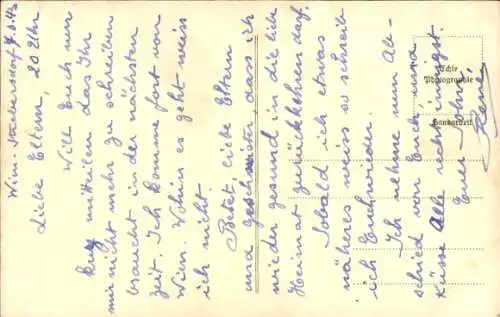 Wien.-Strebersdorf, 7.3.43
Liebe Eltern, 20 Uhr
Will Euch nur
kurz mitteilen das Ihr
mir nicht mehr zu schreiben
braucht in der nächsten
Zeit. Ich komme fort von
Wien. Wohin es geht weiss
ich nicht.
Betet, liebe Eltern
und geschwister, dass ich
wieder gesund in die liebe
Heimat zurückkehren darf.
Sobald ich etwas
näheres weis so schreib
ich Euch wieder.
Ich nehme nun Ab-
schied von Euch und
küsse Alle recht innigst.
Euer Sohn,
René
Echte
Photographie
Handarbeit